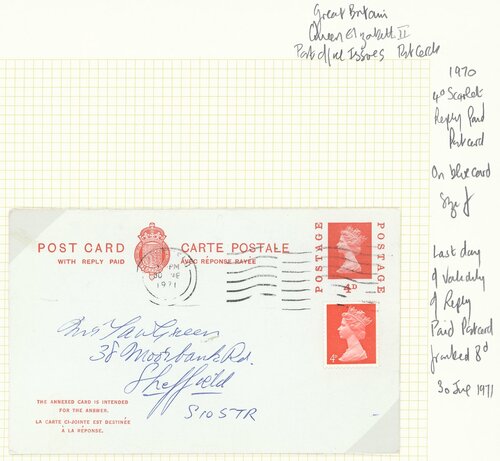 Great Britain
Queen Elizabeth II
Postal Issues Postcards
1970
4d Scarlet
Reply Paid
Postcard
On blue card
Size f
Last day
of Validity
of Reply
Paid Postcard
franked 8d
30 June 1971
POST CARD
WITH REPLY PAID
CARTE POSTALE
AVEC RÉPONSE PAYÉE
POSTAGE
POSTAGE
4D
PM
30
1971
4P
Ian Green
38 Moorbank Rd.
Sheffield
S10 5TR
THE ANNEXED CARD IS INTENDED
FOR THE ANSWER.
LA CARTE CI-JOINTE EST DESTINÉE
À LA RÉPONSE.